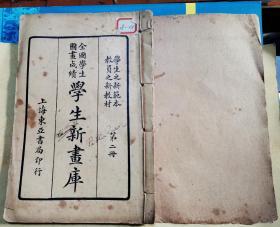 學生之新範本
教員之新教材
第二冊
全國學生
圖畫成績
學生新畫庫
上海東亞書局印行